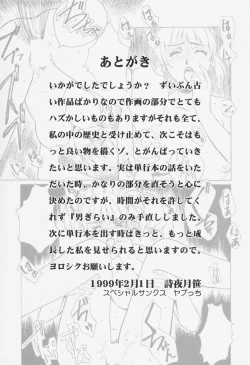 あとがき
いかがでしたでしょうか？　ずいぶん古
い作品ばかりなので作画の部分でとても
ハズかしいものもありますがそれも全て、
私の中の歴史と受け止めて、次こそはも
っと良い物を描くゾ、とがんばっていき
たいと思います。実は単行本の話をいた
だいた時、かなりの部分を直そうと心に
決めたのですが、時間がそれを許してく
れず『男ぎらい』のみ手直ししました。
次に単行本を出す時はきっと、もっと成
長した私を見せられると思いますので、
ヨロシクお願いします。
1999年2月1日　詩夜月笹
スペシャルサンクス　ヤブっち